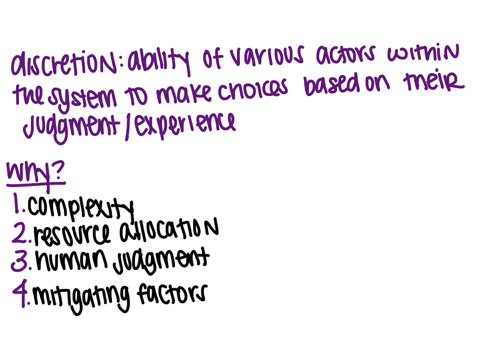 discretion: ability of various actors within
the system to make choices based on their
judgment/experience
why?
1. complexity
2. resource allocation
3. human judgment
4. mitigating factors